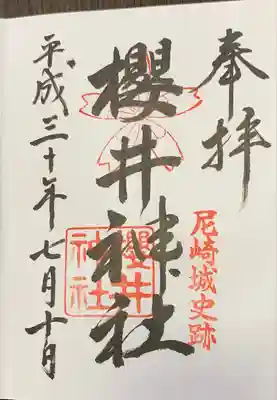 奉拝
尼崎城史跡
櫻井神社
櫻井神社
平成三十年七月十日